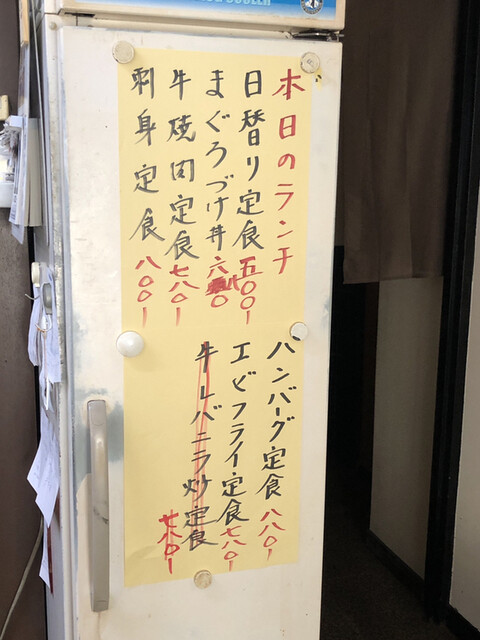 本日のランチ
日替り定食 五〇〇ー
まぐろづけ丼 六八〇
牛焼肉定食 七八〇ー
刺身定食 八〇〇ー
ハンバーグ定食 八八〇ー
エビフライ定食 七八〇ー
牛レバニラ炒定食 七八〇ー